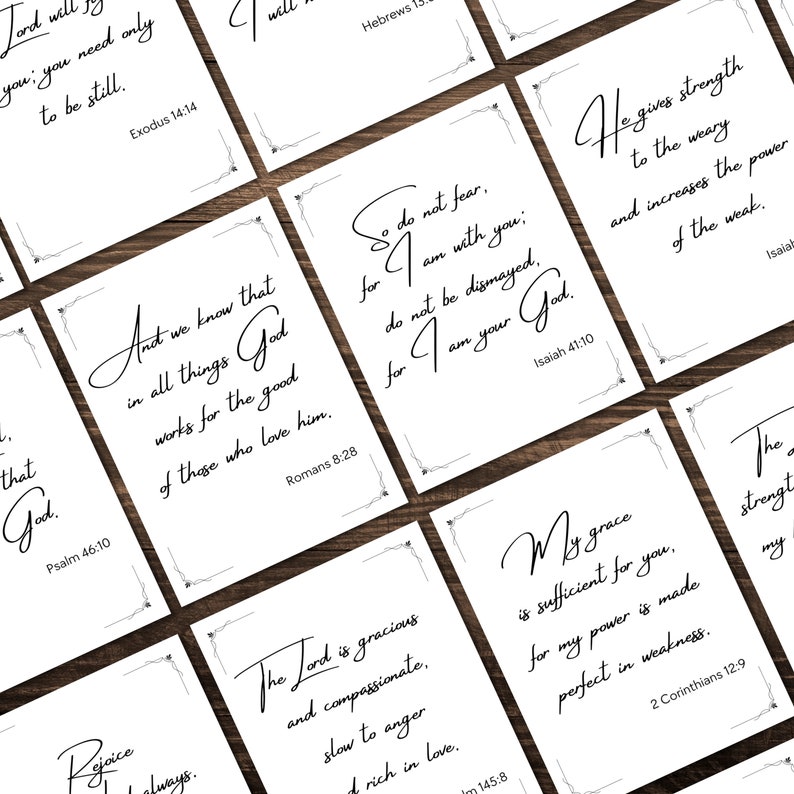 Lord will
you; you need only
to be still.
Exodus 14:14
I will
Hebrews 13:
He gives strength
to the weary
and increases the power
of the weak.
Isaiah
So do not fear,
for I am with you;
do not be dismayed,
for I am your God.
Isaiah 41:10
And we know that
in all things God
works for the good
of those who love him.
Romans 8:28
that
God.
Psalm 46:10
The
strengt
my
My grace
is sufficient for you,
for my power is made
perfect in weakness.
2 Corinthians 12:9
The Lord is gracious
and compassionate,
slow to anger
rich in love.
145:8
Rejoice
always.